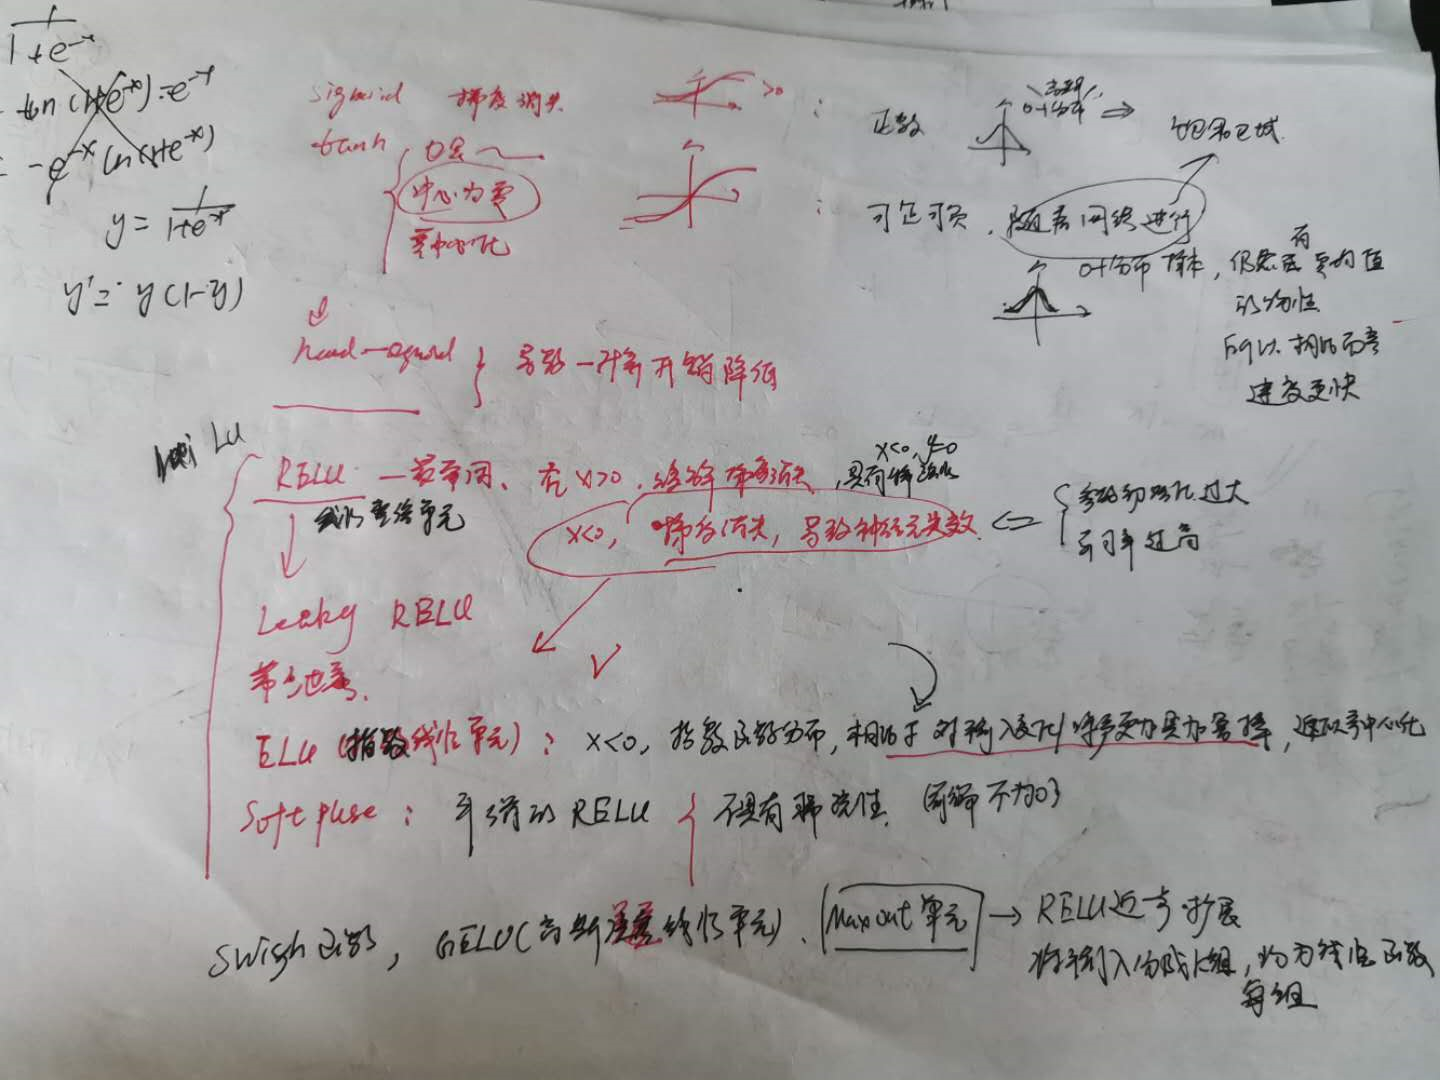 1
1+e^-x
ln(1+e^-x)·e^-x
= -e^-x ln(1+e^-x)
y = 1/(1+e^-x)
y' = y(1-y)
sigmoid 梯度消失 >0 : 正数 0-1分布 ⇒ 饱和区域
tanh
中心为零 : 可正可负，随着网络进行
零中心化
0-1分布 样本，仍然有零均值
的特性
所以相比而言
速度更快
hard-sigmoid } 导数—计算开销降低
RELU — 最常用、在x>0，缓解梯度消失，具有稀疏性
x<0, y=0
线性整流单元
x<0，梯度消失，导致神经元失效 ⇐ { 参数初始化过大
学习率过高
Leaky RELU
带泄露
ELU（指数线性单元）： x<0，指数函数分布，相比于 对输入变化/噪声更加具加鲁棒，近似零中心化
Softpluse： 平滑的RELU { 不具有稀疏性（ 不为0）
Swish函数，GELU（高斯误差线性单元）、Maxout单元 → RELU进一步扩展
将输入分成k组，均为线性函数
每组